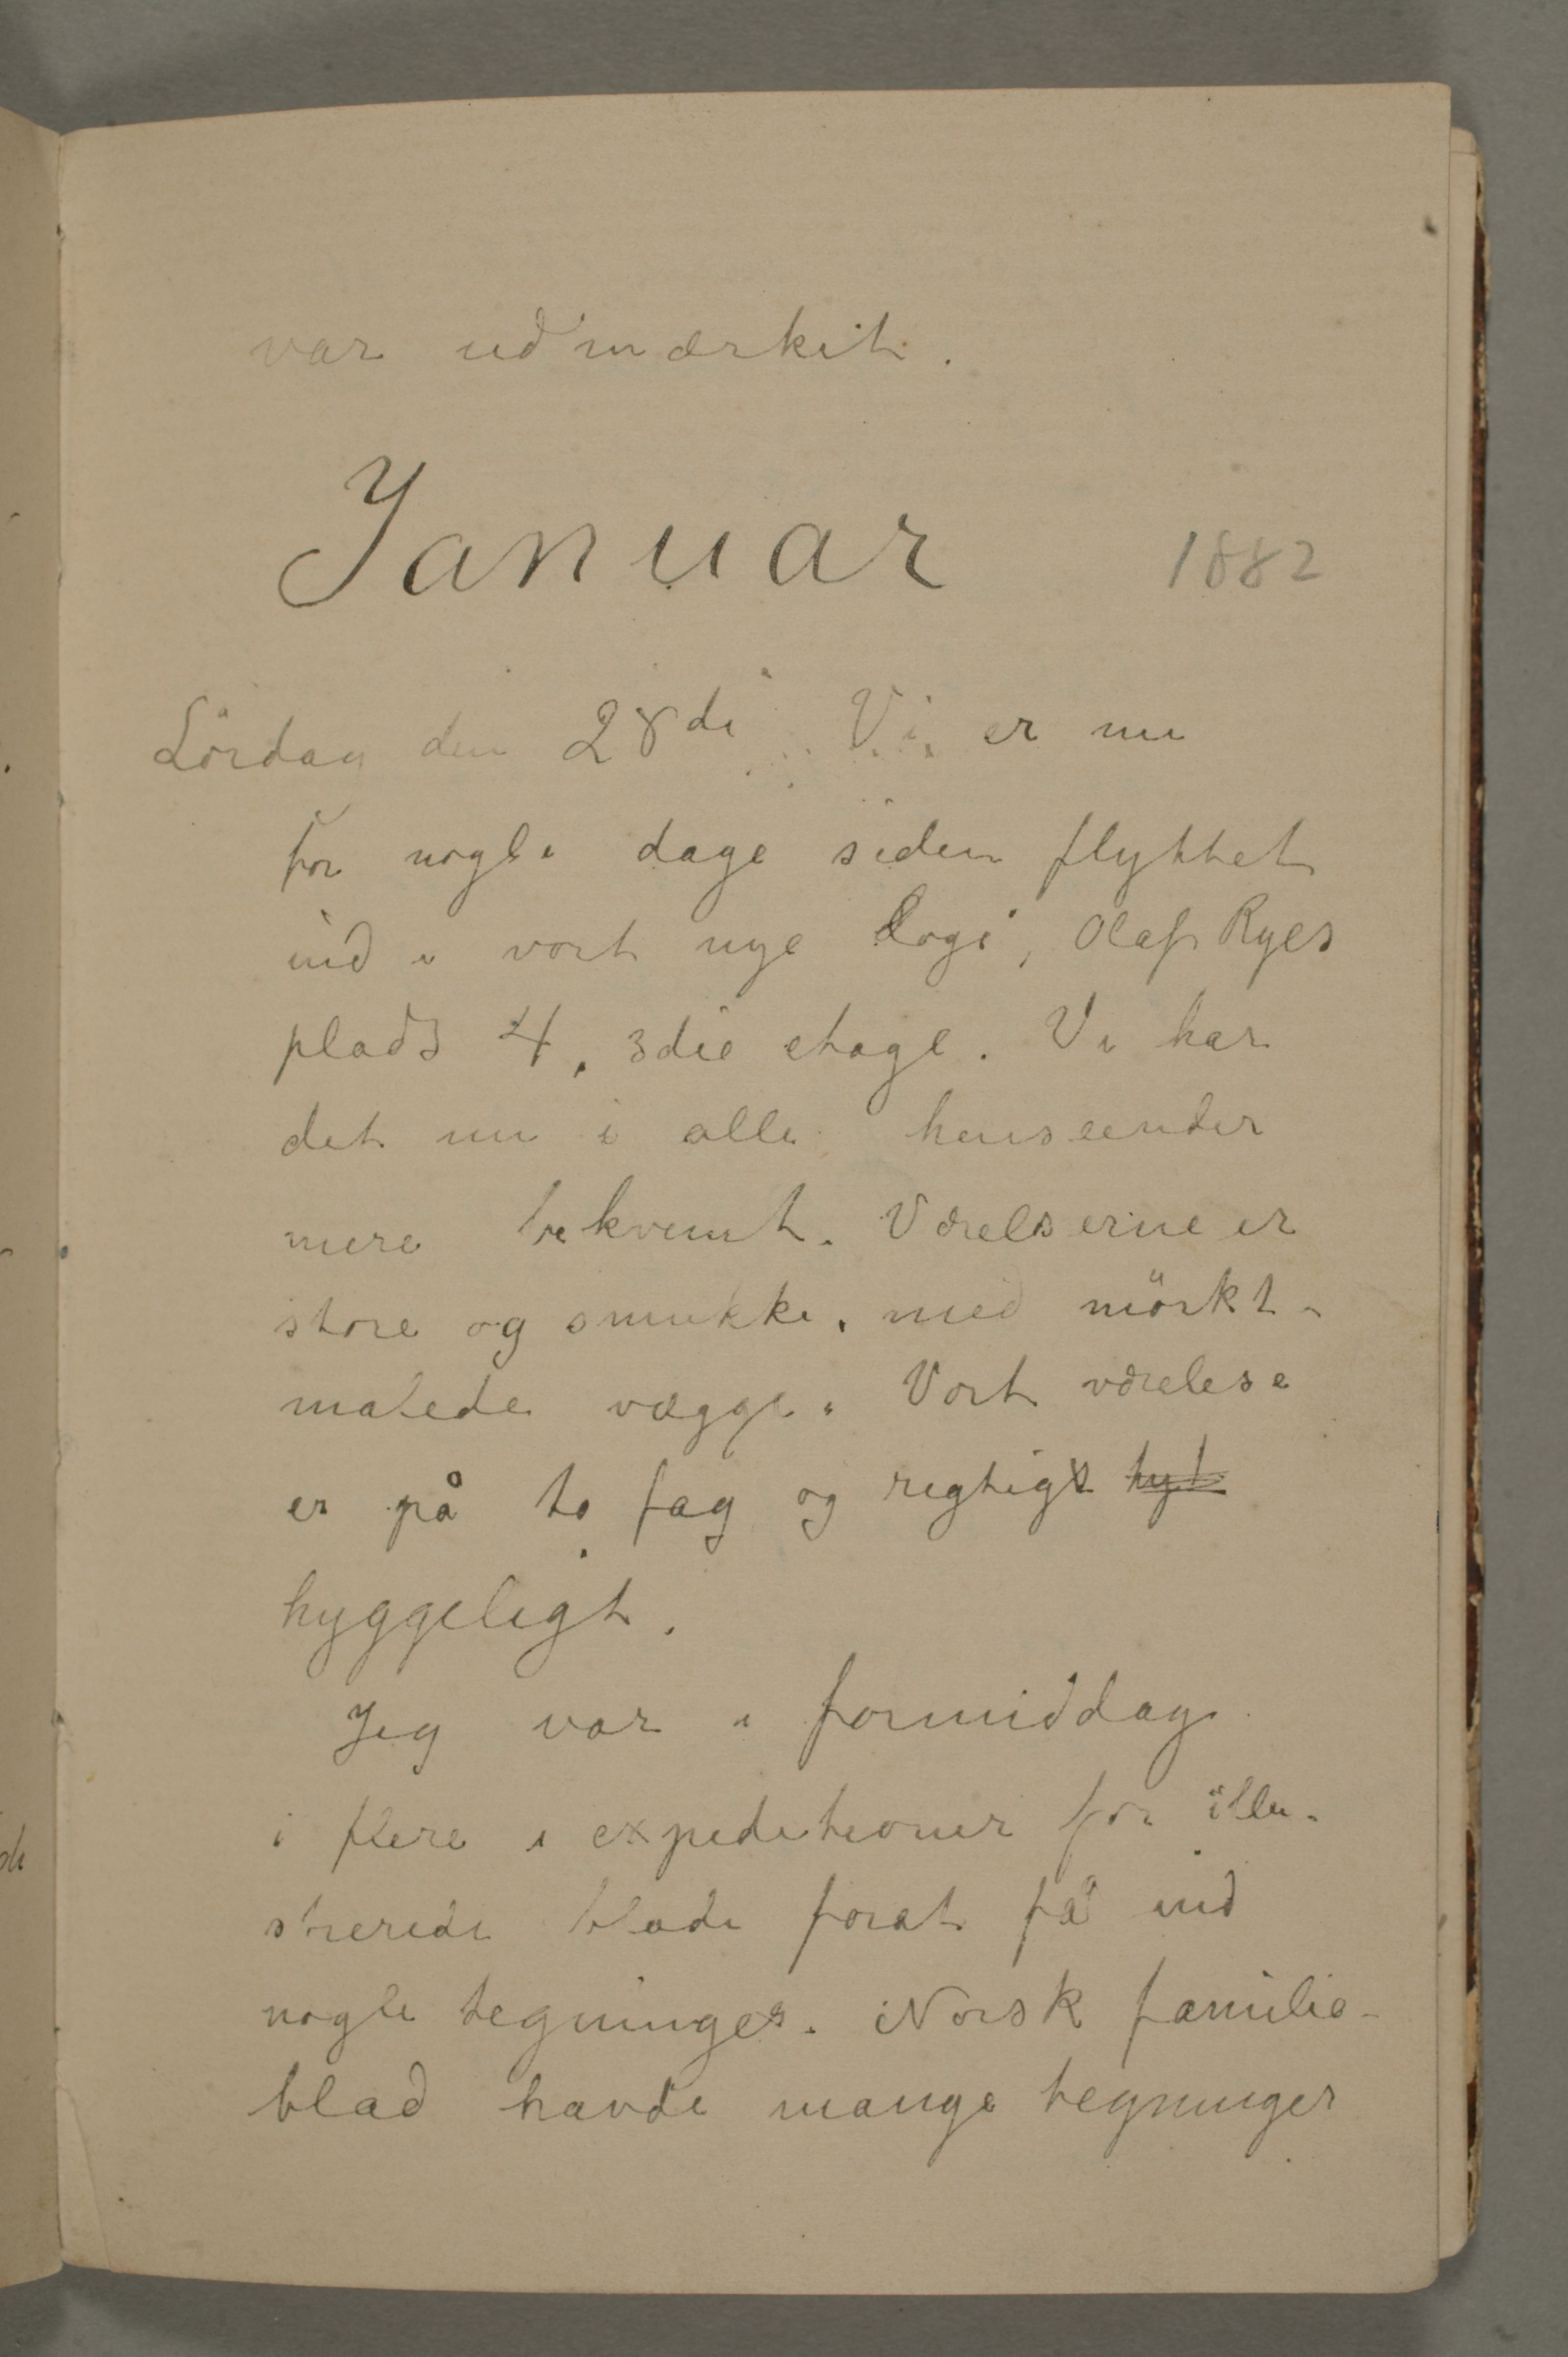 var udmærket.
Januar 1882
Lördag den 28de Vi er nu
for nogle dage siden flyttet
ind i vort nye logi, Olaf Ryes
plads 4, 3die etage. Vi har
det nu i alle henseender
mere bekvemt. Værelserne er
store og smukke, med mörkt-
malede vægge. Vort værelese
er på to fag og regtigt hyt
hyggeligt.
Jeg var i formiddag
i flere i expeditioner for illu-
strerede blade forat få ind
nogle tegninger. Norsk familie-
blad havde mange tegninger